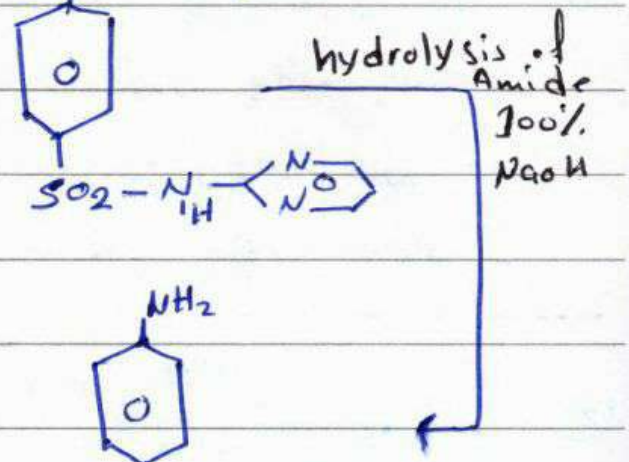 hydrolysis of
Amide
100%
NaOH
O
SO2 - N - N O
H N
NH2
O